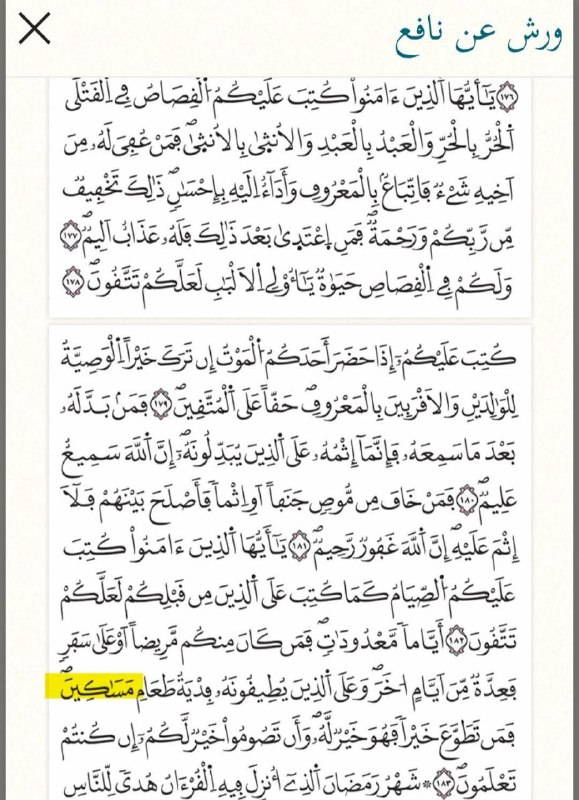 ورش عن نافع
١٧٦ يَـٰٓأَيُّهَا اَ۬لذِينَ ءَامَنُواْ كُتِبَ عَلَيْكُمُ اُ۬لْقِصَاصُ فِے اِ۬لْقَتْلَى
اَ۬لْحُرُّ بِالْحُرِّ وَالْعَبْدُ بِالْعَبْدِ وَالُانث۪ىٰ بِالُانث۪ىٰ فَمَنْ عُفِيَ لَهُۥ مِنَ
اَخِيهِ شَےْءٞ فَاتِّبَاعُۢ بِالْمَعْرُوفِ وَأَدَآءٌ اِلَيْهِ بِإِحْسَٰنٖۖ ذَٰلِكَ تَخْفِيفٞ
مِّن رَّبِّكُمْ وَرَحْمَةٞۖ فَمَنِ اِ۪عْتَد۪ىٰ بَعْدَ ذَٰلِكَ فَلَهُۥ عَذَابٌ اَلِيمٞۖ ١٧٧
وَلَكُمْ فِے اِ۬لْقِصَاصِ حَيَوٰةٞ يَـٰٓأُوْلِے اِ۬لَالْبَٰبِ لَعَلَّكُمْ تَتَّقُونَۖ ١٧٨
كُتِبَ عَلَيْكُمُۥٓ إِذَا حَضَرَ أَحَدَكُمُ اُ۬لْمَوْتُ إِن تَرَكَ خَيْراً اِ۬لْوَصِيَّةُ
لِلْوَٰلِدَيْنِ وَالَاقْرَبِينَ بِالْمَعْرُوفِۖ حَقّاً عَلَى اَ۬لْمُتَّقِينَۖ ١٧٩ فَمَنۢ بَدَّلَهُۥ
بَعْدَ مَا سَمِعَهُۥ فَإِنَّمَآ إِثْمُهُۥ عَلَى اَ۬لذِينَ يُبَدِّلُونَهُۥٓۖ إِنَّ اَ۬للَّهَ سَمِيعٌ
عَلِيمٞۖ ١٨٠ فَمَنْ خَافَ مِن مُّوصٖ جَنَفاً اَوِ اِثْماً فَأَصْلَحَ بَيْنَهُمْ فَلَآ
إِثْمَ عَلَيْهِۖ إِنَّ اَ۬للَّهَ غَفُورٞ رَّحِيمٞۖ ١٨١ يَـٰٓأَيُّهَا اَ۬لذِينَ ءَامَنُواْ كُتِبَ
عَلَيْكُمُ اُ۬لصِّيَامُ كَمَا كُتِبَ عَلَى اَ۬لذِينَ مِن قَبْلِكُمْ لَعَلَّكُمْ
تَتَّقُونَ ١٨٢ أَيَّاماً مَّعْدُودَٰتٖۖ فَمَن كَانَ مِنكُم مَّرِيضاً اَوْ عَلَىٰ سَفَرٖ
فَعِدَّةٞ مِّنَ اَيَّامٍ اُخَرَۖ وَعَلَى اَ۬لذِينَ يُطِيقُونَهُۥ فِدْيَةُ طَعَامِ مَسَٰكِينَۖ
فَمَن تَطَوَّعَ خَيْراً فَهُوَ خَيْرٞ لَّهُۥۖ وَأَن تَصُومُواْ خَيْرٞ لَّكُمُۥٓ إِن كُنتُمْ
تَعْلَمُونَۖ ١٨٣ ۞ شَهْرُ رَمَضَانَ اَ۬لذِےٓ أُنزِلَ فِيهِ اِ۬لْقُرْءَانُ هُدىٗ لِّلنَّاسِ